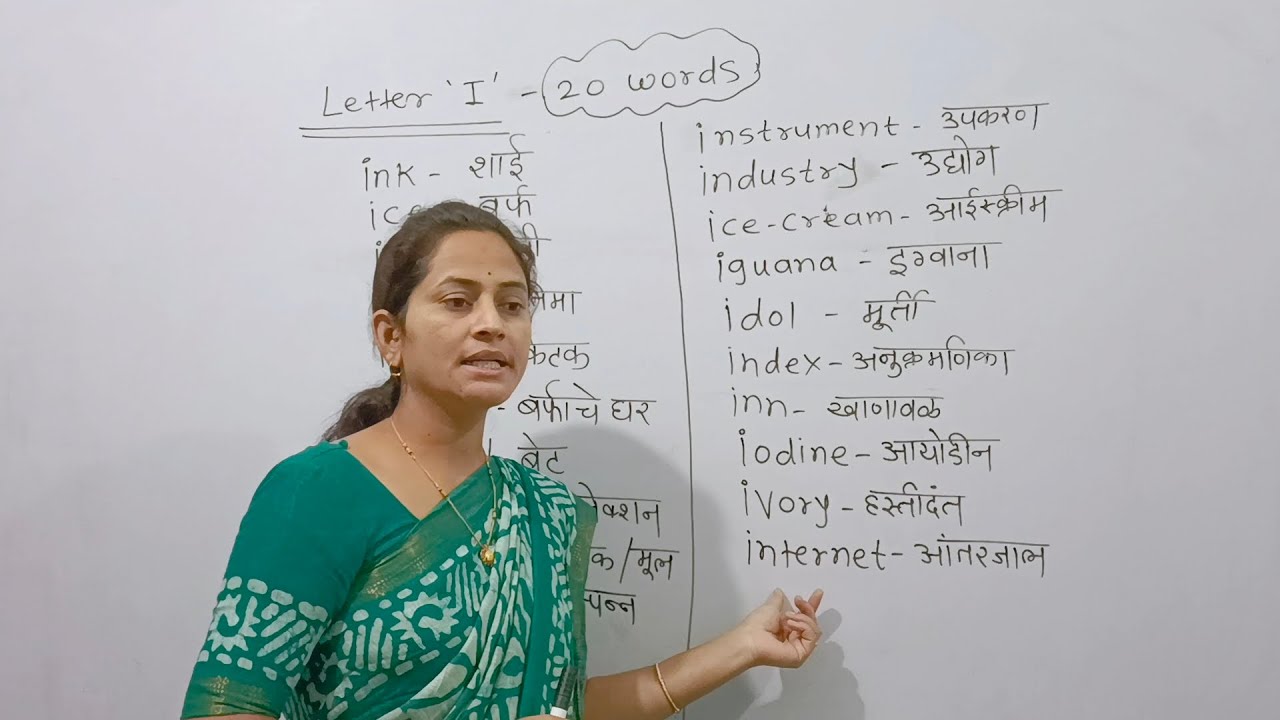 Letter 'I' - 20 words
ink - शाई
ice बर्फ
- बर्फाचे घर
- बेट
/मूल
instrument - उपकरण
industry - उद्योग
ice-cream - आईस्क्रीम
iguana - इग्वाना
idol - मूर्ती
index - अनुक्रमणिका
inn - खाणावळ
iodine - आयोडीन
ivory - हस्तीदंत
internet - आंतरजाल